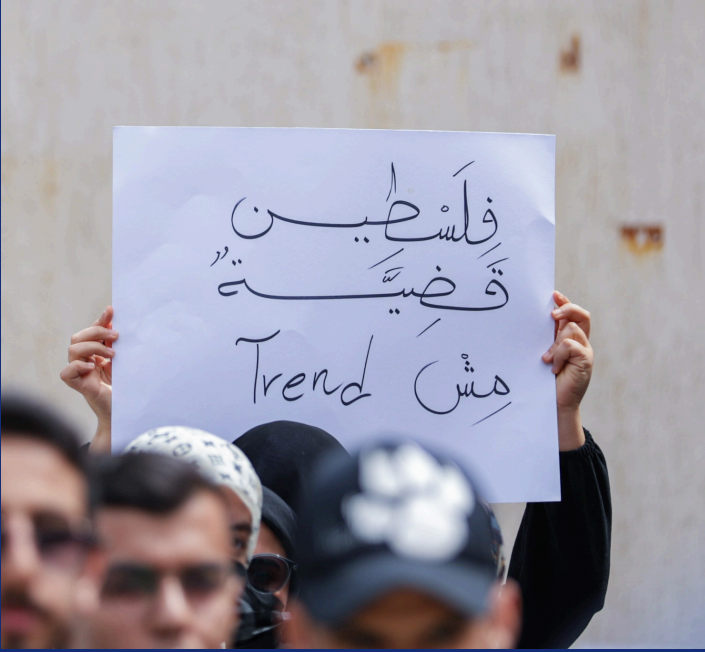 فِلَسْطين
قَضِيَّةٌ
مِشْ Trend